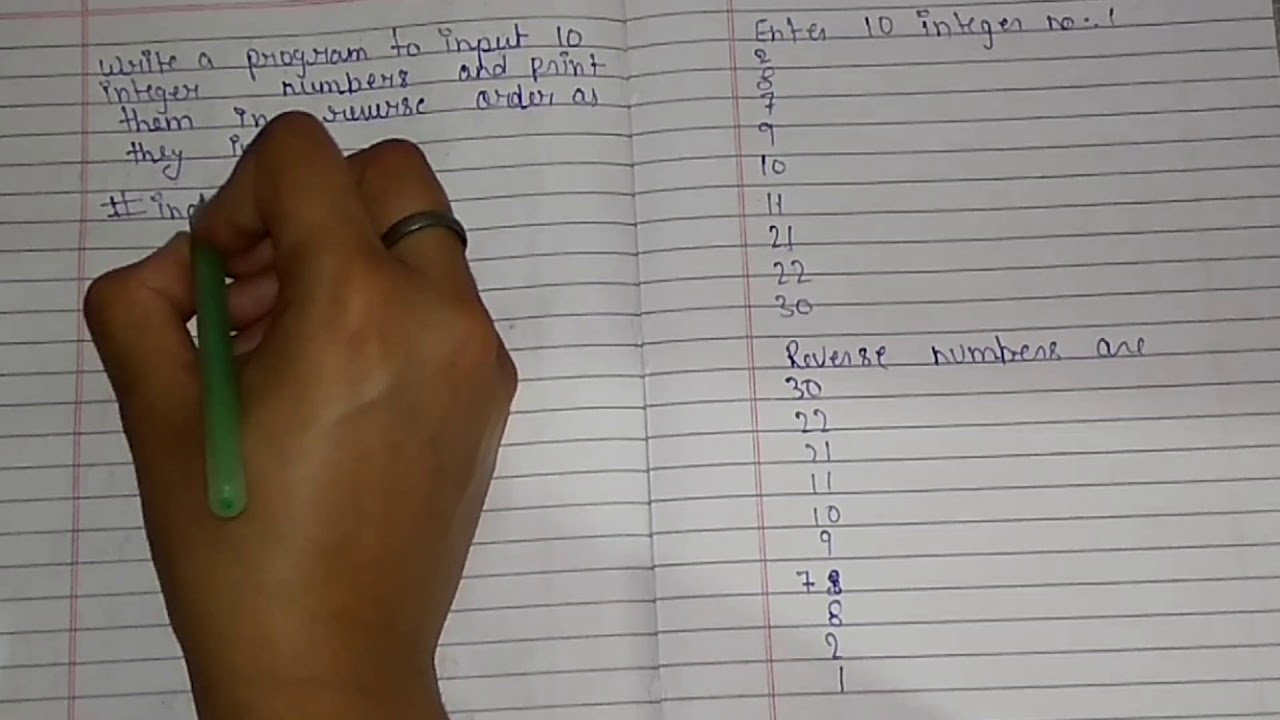 Write a program to input 10
integer numbers and print
them in reverse order as
they
# inc
Enter 10 integer no.: 1
2
8
7
9
10
11
21
22
30
Reverse numbers are
30
22
21
11
10
9
7 8
8
2
1